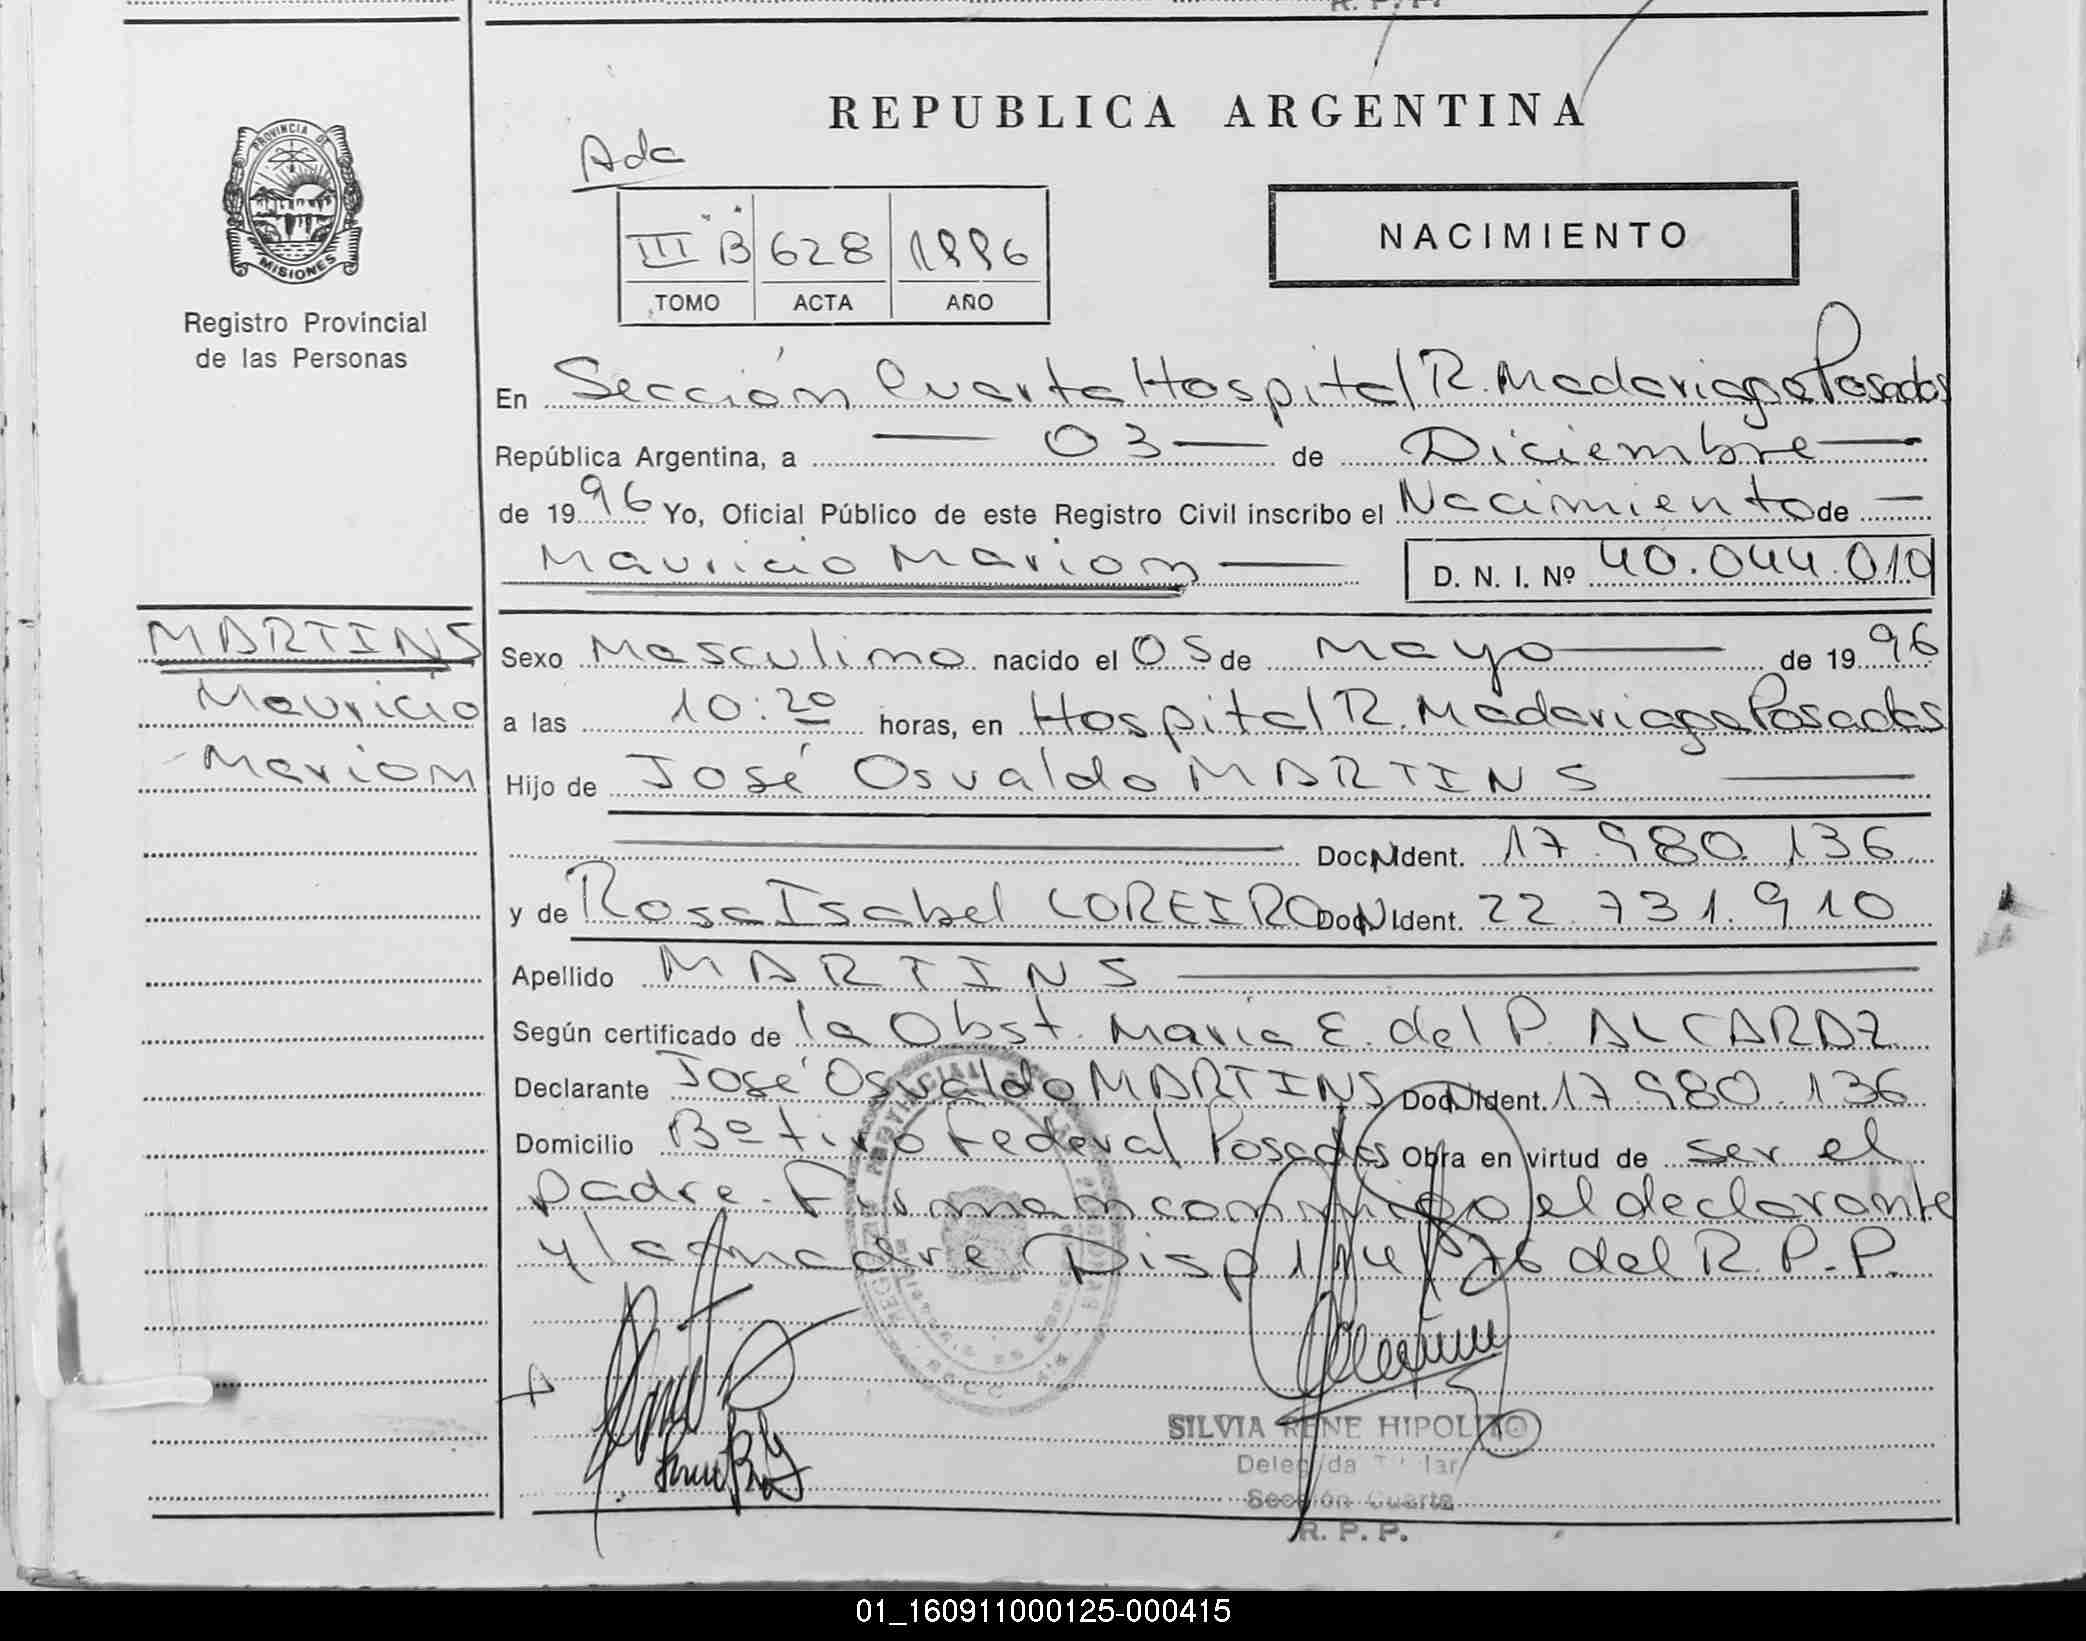 REPUBLICA ARGENTINA
PROVINCIA DE
MISIONES
Registro Provincial
de las Personas
Ada
III B 628 1996
TOMO ACTA AÑO
NACIMIENTO
En Sección Cuarta Hospital R. Madariaga Posadas
República Argentina, a 03 de Diciembre
de 1996 Yo, Oficial Público de este Registro Civil inscribo el Nacimiento de
Mauricio Marion D. N. I. Nº 40.044.010
MARTINS
Mauricio
Marion
Sexo Masculino nacido el 05 de Mayo de 1996
a las 10:20 horas, en Hospital R. Madariaga Posadas
Hijo de José Osvaldo MARTINS
Doc N Ident. 17.980.136
y de Rosa Isabel LOREIRO Doc N Ident. 22.731.910
Apellido MARTINS
Según certificado de la Obst. Maria E. del P. ALCARAZ
Declarante José Osvaldo MARTINS Doc N Ident. 17.980.136
Domicilio Bº tiro Federal Posadas Obra en virtud de ser el
padre. Firman conmigo el declarante
y la madre Disp 114/76 del R. P. P.
SILVIA RENE HIPOLITO
Delegada Titular
Sección Cuarta
R. P. P.
01_160911000125-000415